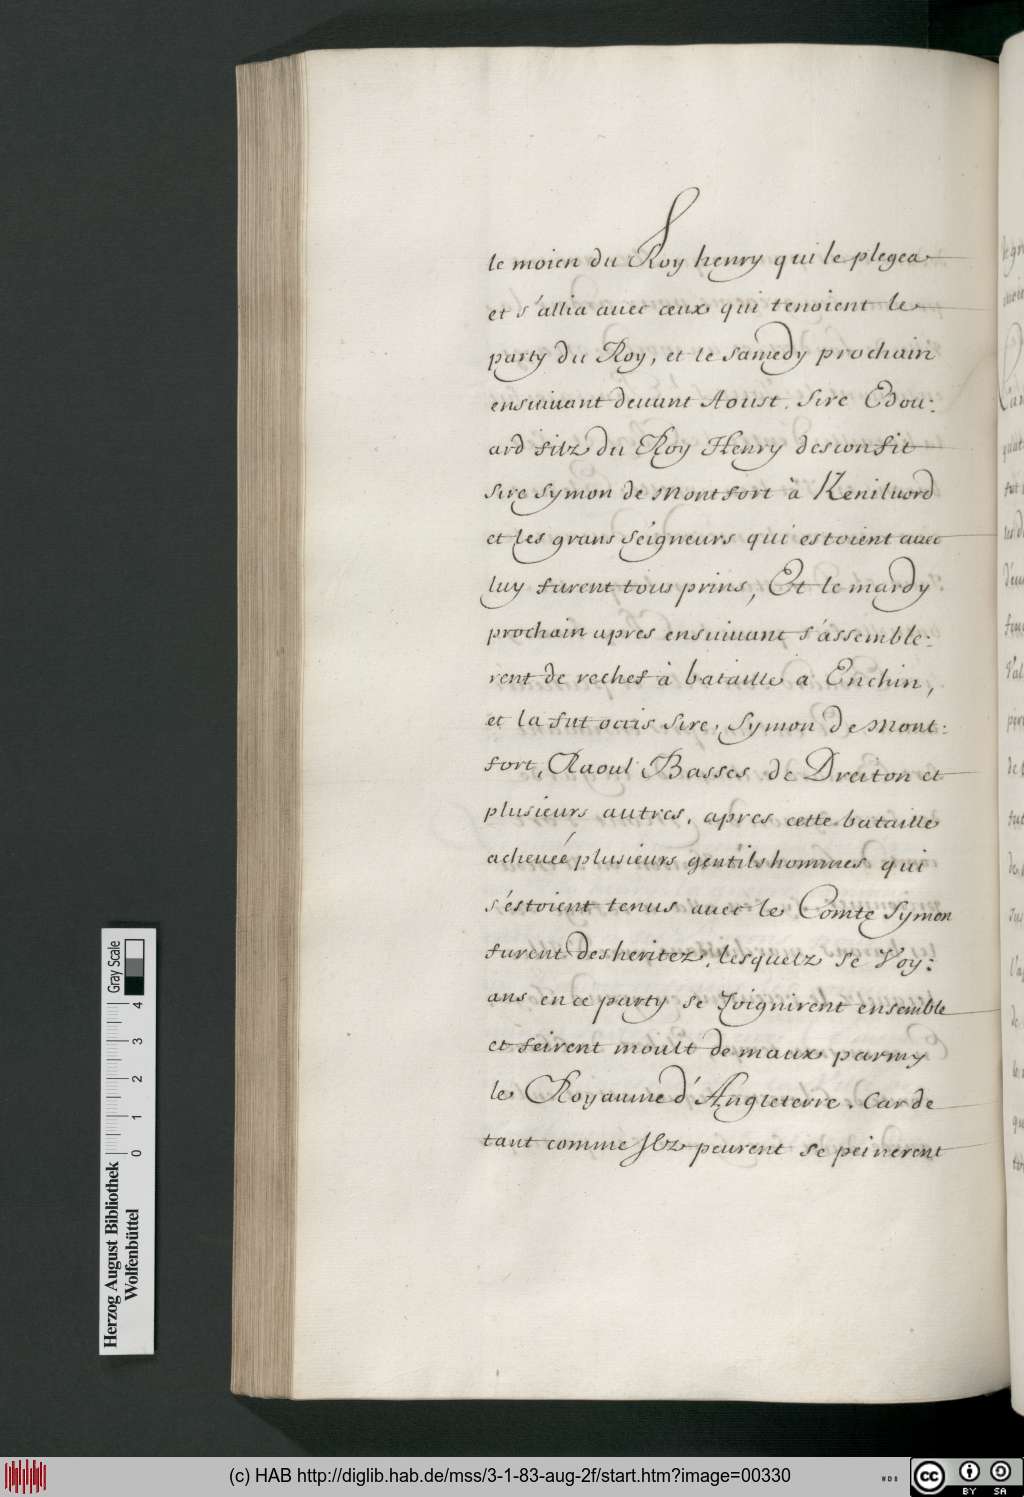 le moien du Roy henry qui le plegea
et s'allia auec ceux qui tenoient le
party du Roy, et le samedy prochain
ensuiuant deuant Aoust. Sire Edou:
ard filz du Roy Henry desconfit
Sire Symon de Montfort à Keniluord
et les grans Seigneurs qui estoient auec
luy furent tous prins, Et le mardy
prochain apres ensuiuant s'assemble:
rent de rechef à bataille a Enchin,
et la fut occis Sire, Symon de Mont:
fort, Raoul Basses de Dreiton et
plusieurs autres. apres cette bataille
acheueé plusieurs gentilshommes qui
s'éstoient tenus auec le Comte Symon
furent desheritez, lesquelz se Voy:
ans en ce party se Joignirent ensemble
et feirent moult de maux parmy
le Royaume d'Angleterre. Car de
tant comme Jlz peurent se peinerent
Herzog August Bibliothek
Wolfenbüttel
0 1 2 3 4
Gray Scale
(c) HAB http://diglib.hab.de/mss/3-1-83-aug-2f/start.htm?image=00330
WDB
cc BY SA